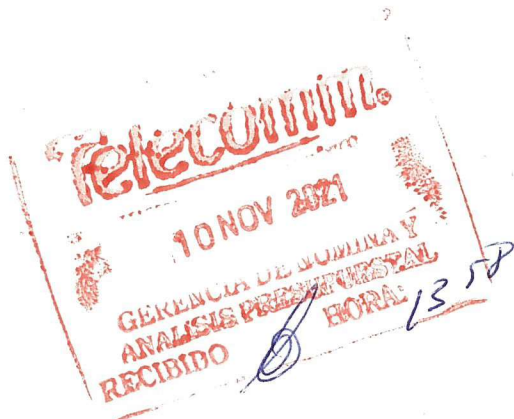 Telecomm.
10 NOV 2021
GERENCIA DE NOMINA Y
ANALISIS PRESUPUESTAL
RECIBIDO HORA: 13 58